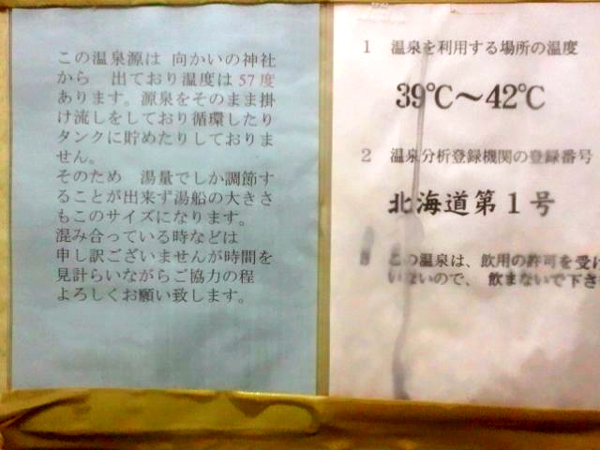 この温泉源は 向かいの神社
から 出ており温度は57度
あります。源泉をそのまま掛
け流しをしており循環したり
タンクに貯めたりしておりま
せん。
そのため 湯量でしか調節す
ることが出来ず湯船の大きさ
もこのサイズになります。
混み合っている時などは
申し訳ございませんが時間を
見計らいながらご協力の程
よろしくお願い致します。
1 温泉を利用する場所の温度
39℃～42℃
2 温泉分析登録機関の登録番号
北海道第1号
3 この温泉は、飲用の許可を受け
いないので、 飲まないで下さ